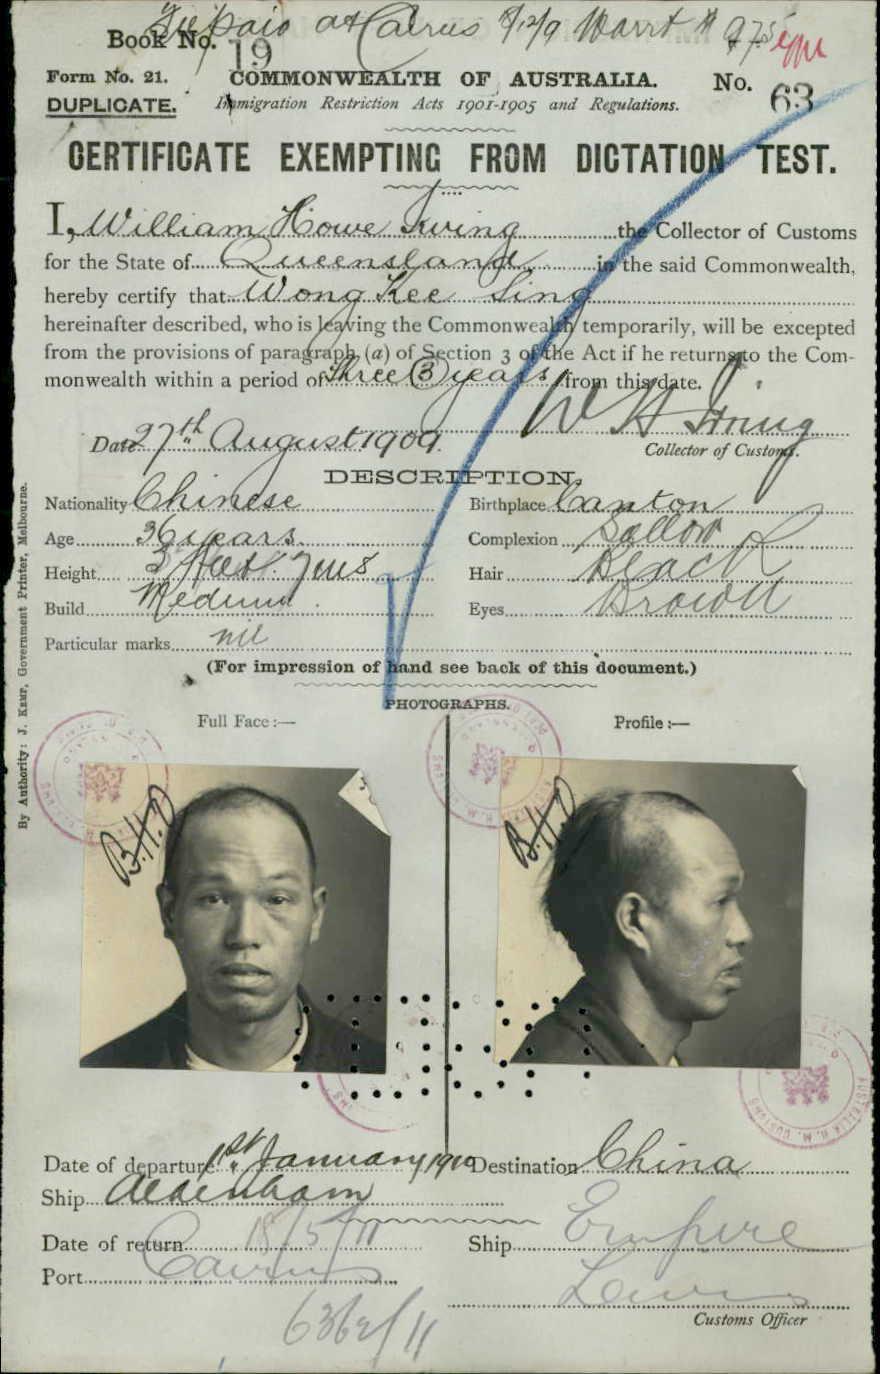 Book No. 19
at Cairns
Form No. 21.
COMMONWEALTH OF AUSTRALIA.
No. 63
DUPLICATE.
Immigration Restriction Acts 1901-1905 and Regulations.
CERTIFICATE EXEMPTING FROM DICTATION TEST.
I, William Howe Irving the Collector of Customs
for the State of Queensland in the said Commonwealth,
hereby certify that Wong Kee Sing
hereinafter described, who is leaving the Commonwealth temporarily, will be excepted
from the provisions of paragraph (a) of Section 3 of the Act if he returns to the Com-
monwealth within a period of three (3) years from this date.
W H Irving
Date 27th August 1909.
Collector of Customs.
DESCRIPTION.
Nationality Chinese
Birthplace Canton
Age 36 years.
Complexion Sallow
Height 5 feet 7 ins
Hair Black
Build Medium.
Eyes Brown
Particular marks nil
(For impression of hand see back of this document.)
PHOTOGRAPHS.
Full Face :—
Profile :—
B.H.D
B.H.D
Date of departure 1st January 1910
Destination China
Ship Aldenham
Date of return 18/5/11
Ship Empire
Port Cairns
Lewis
Customs Officer
By Authority: J. KEMP, Government Printer, Melbourne.